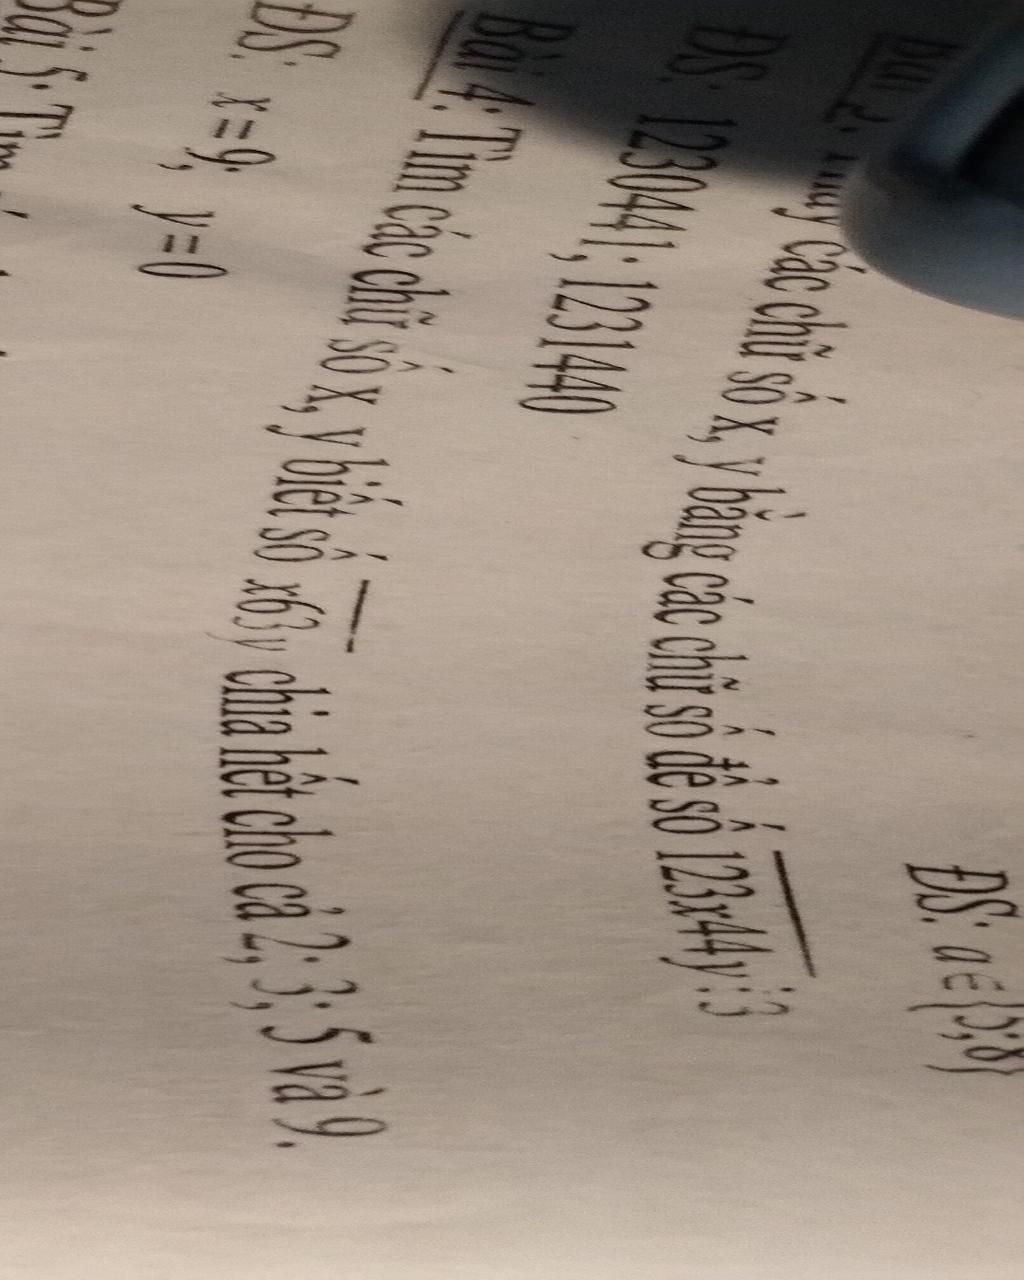 ĐS: a ∈ {5;8}
các chữ số x, y bằng các chữ số để số 123x44y ⋮ 3
ĐS: 1230441; 1231440
Bài 4: Tìm các chữ số x, y biết số x63y chia hết cho cả 2; 3; 5 và 9.
ĐS: x = 9, y = 0
Bài 5: Tìm